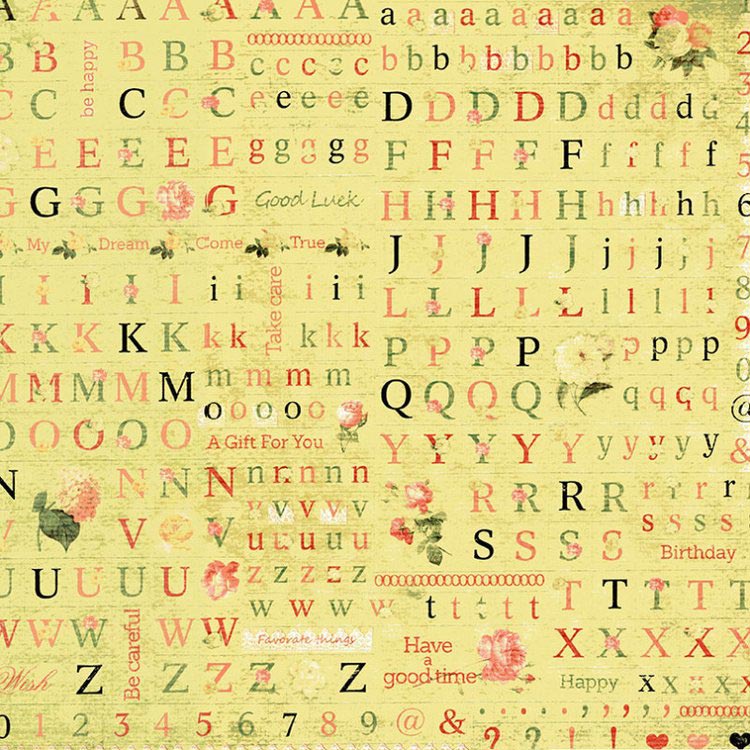 A A A A A A A A A
a a a a a a a a a
B B be happy B B B
b b b b b b b b b b
c c c c c c
C C C C C
e e e e e e
D D D D D D d d d d d
E E E E E E
g g g g g
F F F F F f f f f f
G G G G G G
Good Luck
H H H H H h h h h h
My Dream Come True
J J J J J j j j j j
I I I I I i i Take care i i i
L L L L L l l l l l
K K K K K k k k k k
P P P P p p p p
M M M M M m m m m m
o o o o o o
Q Q Q Q Q q q q q
O O O O O
A Gift For You
Y Y Y Y Y y y y y y
N N N N
n n n n n n
R R R R r r r r
V V V
v v v v v
s s s s s
u u u u u u
S S S S
Birthday
U U U U U
z z z z z z
t t t t t
T T T T T
W W W Be careful W W
w w w w w
Favorate things
X X X X X
Have
a
good time
Wish Z Z Z Z Z Z
Happy x x x x x
0 1 2 3 4 5 6 7 8 9 @ &
2
3
4
5
6
7
8
9
0
@
&
? ! ! !